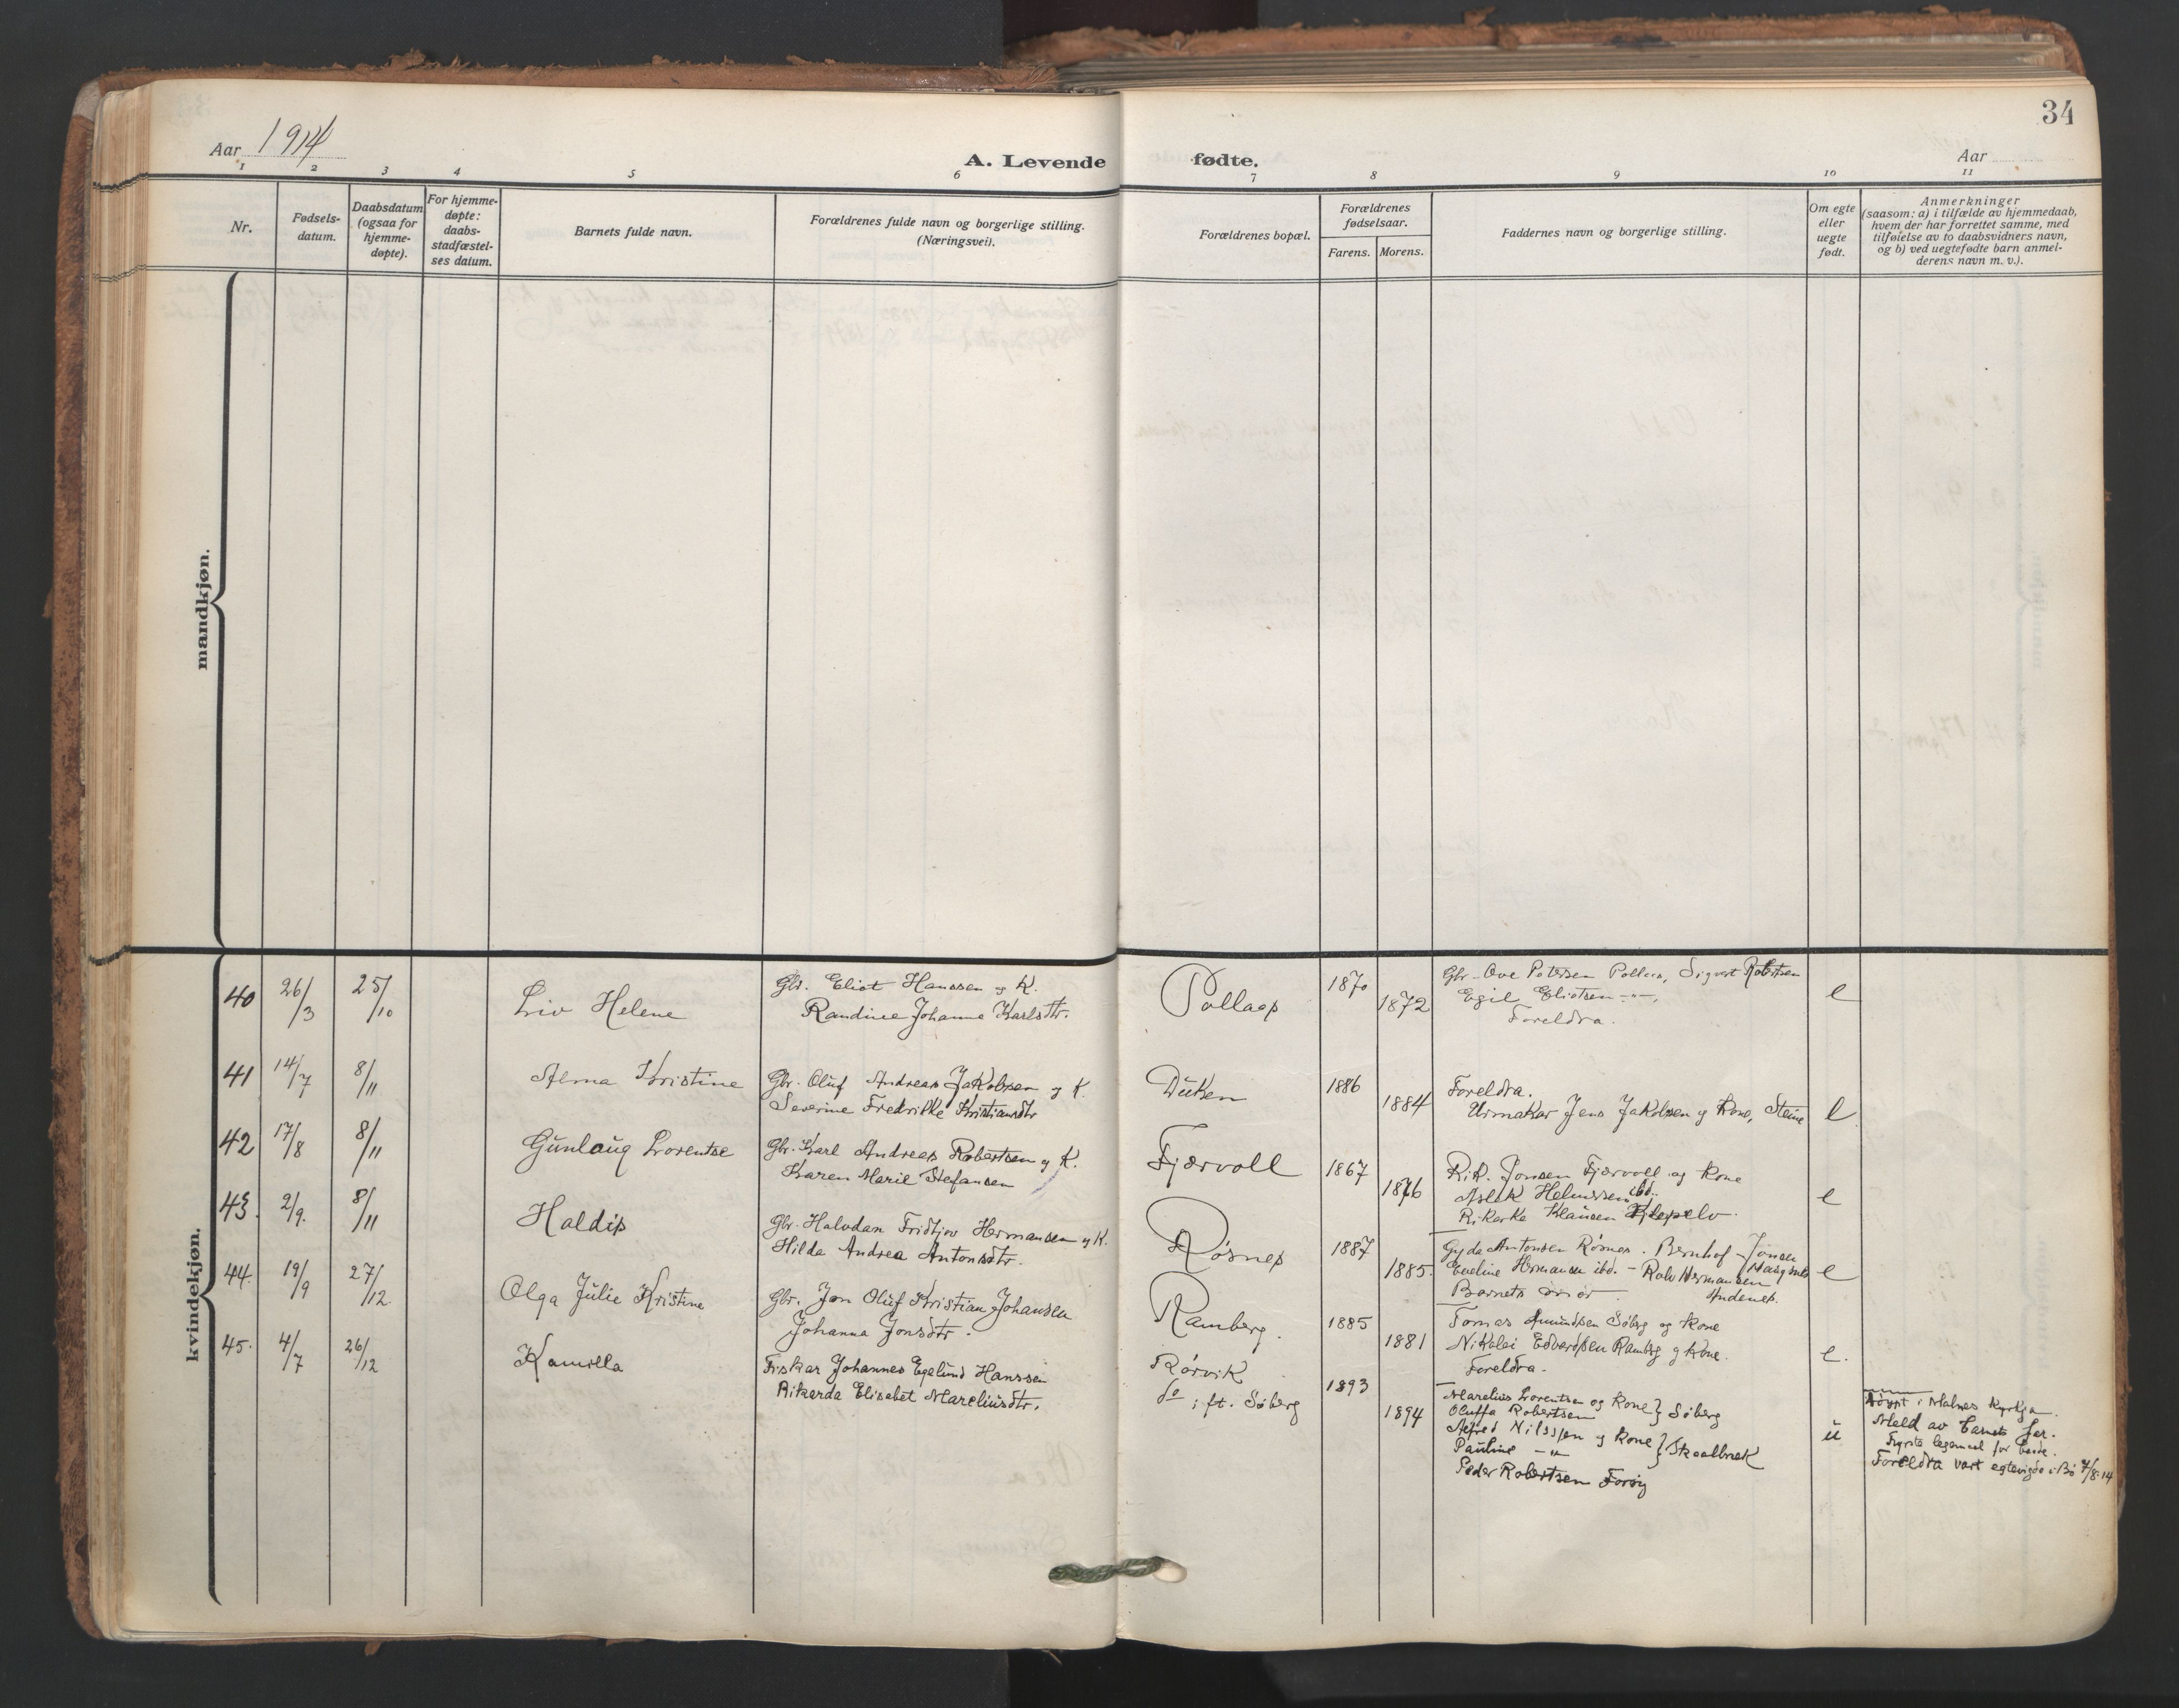 34
Aar 1914
A. Levende fødte.
Aar
1 2 3 4 5 6 7 8 9 10 11
Nr.
Fødsels-
datum.
Daabsdatum
(ogsaa for
hjemme-
døpte).
For hjemme-
døpte:
daabs-
stadfæstel-
ses datum.
Barnets fulde navn.
Forældrenes fulde navn og borgerlige stilling.
(Næringsvei).
Forældrenes bopæl.
Forældrenes
fødselsaar.
Farens. Morens.
Faddernes navn og borgerlige stilling.
Om egte
eller
uegte
født.
Anmerkninger
(saasom: a) i tilfælde av hjemmedaab,
hvem der har forrettet samme, med
tilføielse av to daabsvidners navn,
og b) ved uegtefødte barn anmel-
derens navn m. v.).
mandkjøn.
kvindekjøn.
40 26/3 25/10 Liv Helene
Gbr. Eliot Hanssen og K.
Randine Johanne Karlsdtr.
Pollaas 1870 1872
Gbr. Ove Petersen Pollaas, Sigvart Robertsen
Egil Eliotsen -"-,
Foreldra.
e
41 14/7 8/11 Alma Kristine
Gbr. Oluf Andreas Jakobsen og K.
Severine Fredrikke Kristiansdtr
Duken 1886 1884
Foreldra.
Urmakar Jens Jakobsen og kone, Steine
e
42 17/8 8/11 Gunlaug Lorentse
Gbr. Karl Andreas Robertsen og K.
Karen Marie Stefansen
Fjærvoll 1867 1876
Rik. Jonsen Fjærvoll og kone
Aslak Helmersen ibd.
Rikarka Klausen
e
43. 2/9. 8/11 Haldis
Gbr. Halvdan Fridtjov Hermansen og K.
Hilda Andrea Antonsdtr.
Røsnes 1887 1885.
Gyda Antonsen Røsnes. Bernhof Jonsen
Eveline Hermansen ibd. - Rolv Hermansen
Barnets mor. Andenes.
e
44. 19/9 27/12 Olga Julie Kristine
Gbr. Jon Oluf Kristian Johansen
Johanna Jonsdtr.
Ramberg. 1885 1881
Tomas Amundsen Søberg og kone
Nikolai Edvardsen Ramberg og kone.
Foreldra.
e.
45. 4/7 26/12 Kamilla
Fiskar Johannes Egelund Hanssen
Rikarda Elisabet Mareliusdtr.
Rørvik
do ; ft. Søberg
1893 1894
Marelius Lorentsen og kone } Søberg
Oluffa Robertsen
Alfred Nilssen og kone } Skaalbrek
Pauline -"-
Peder Robertsen Forøy
u
Døypt i Malnes kyrkja.
Meld av barnets far.
Fyrste legemaal for baade.
Foreldra vart egtevigde i Bø 7/8-14